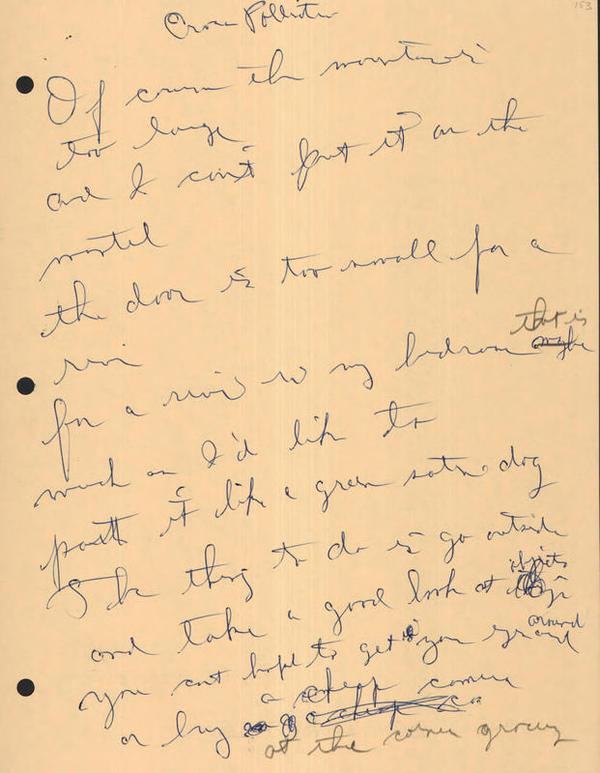 153
Cross Pollination
Of course the mountain is
too large
and I can't put it on the
mantel
the door is too small for a
river
for a river in my bedroom that is
much as I'd like to
pat it like a green satin dog
The thing to do is go outside
and take a good look at objects
you can't hope to get your around
or buy a cheap camera
at the corner grocery